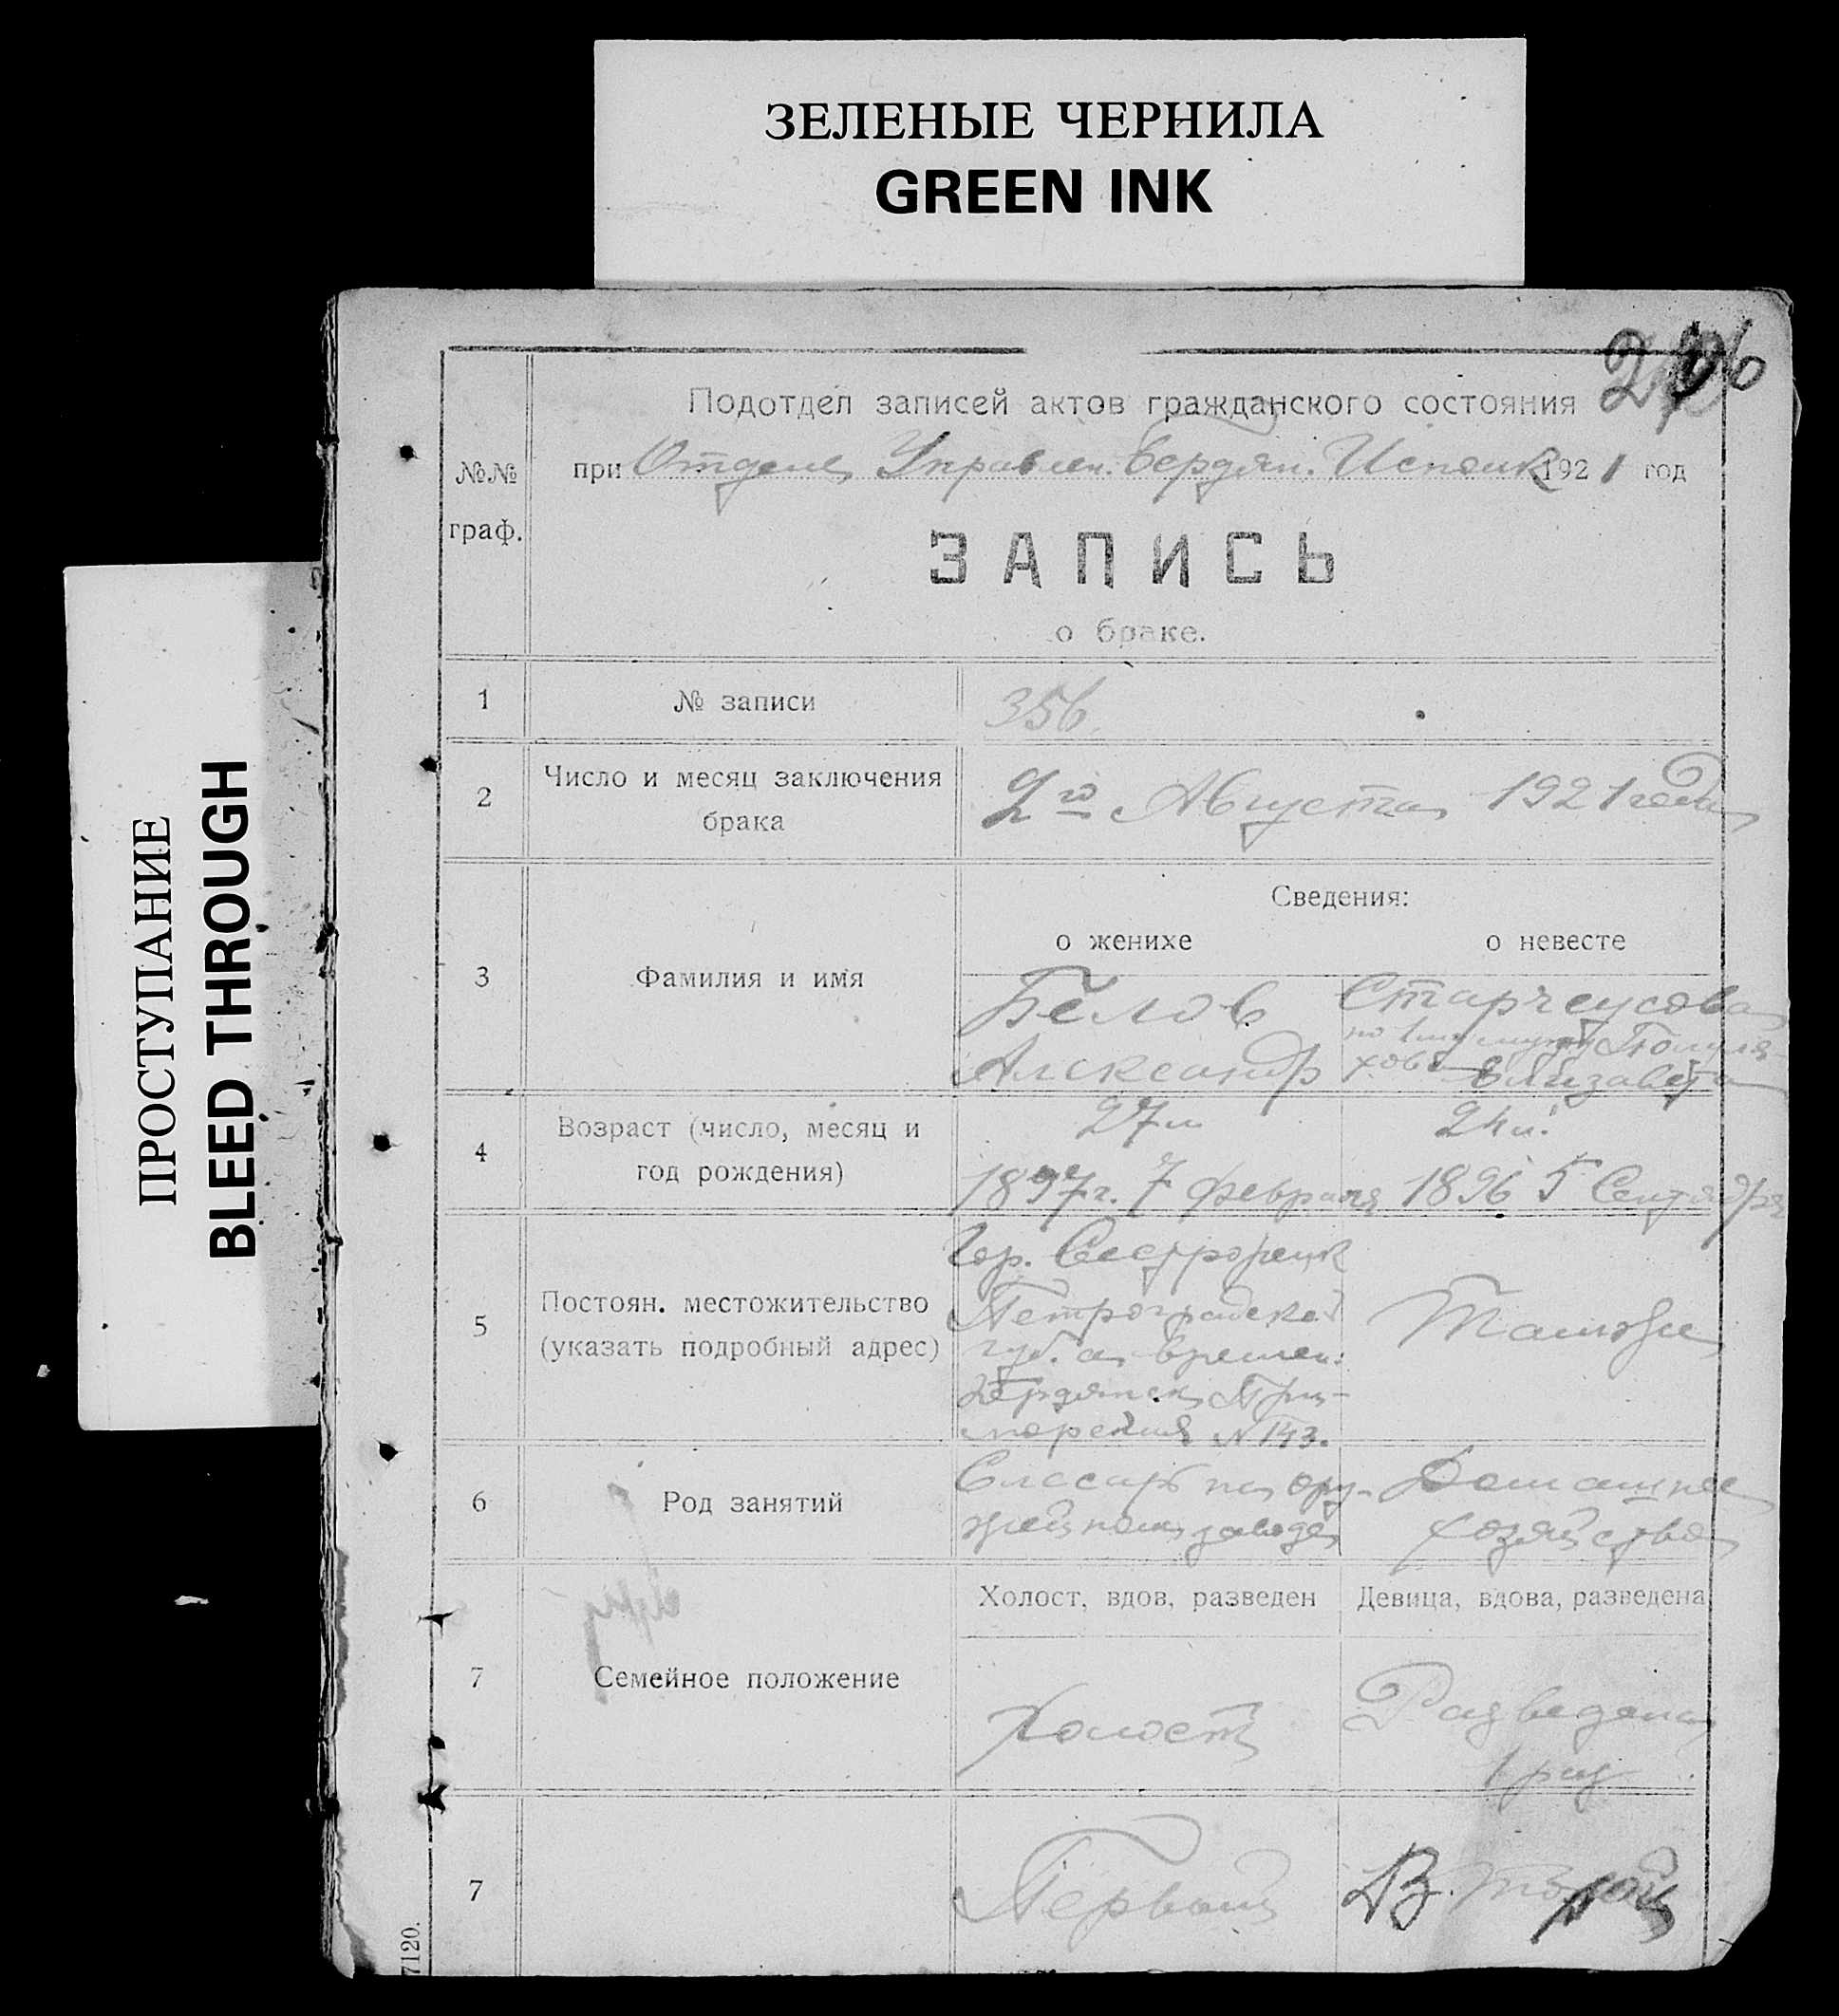 ЗЕЛЕНЫЕ ЧЕРНИЛА
GREEN INK
ПРОСТУПАНИЕ
BLEED THROUGH
Подотдел записей актов гражданского состояния
№№ граф.
при Отделе Управлен. Бердян. Исполк 1921 год
ЗАПИСЬ
о браке.
1 № записи 356.
2 Число и месяц заключения брака
2го Августа 1921 года
Сведения:
о женихе о невесте
3 Фамилия и имя
Белов Старчеусова
по 1му мужу
Александр Елизавета
4 Возраст (число, месяц и год рождения)
27 л. 24 л.
1897 г. 7 февраля 1896 5 Сентября
5 Постоян. местожительство (указать подробный адрес)
Гор. Сестрорецк
Петроградской
губ. а времен.
Бердянск При-
морская № 143.
Там же
6 Род занятий
Слесарь на ору- Домашнее
жейном заводе хозяйство
Холост, вдов, разведен Девица, вдова, разведена
7 Семейное положение
Холост Разведена
1 раз
7 Первый Второй
7120.